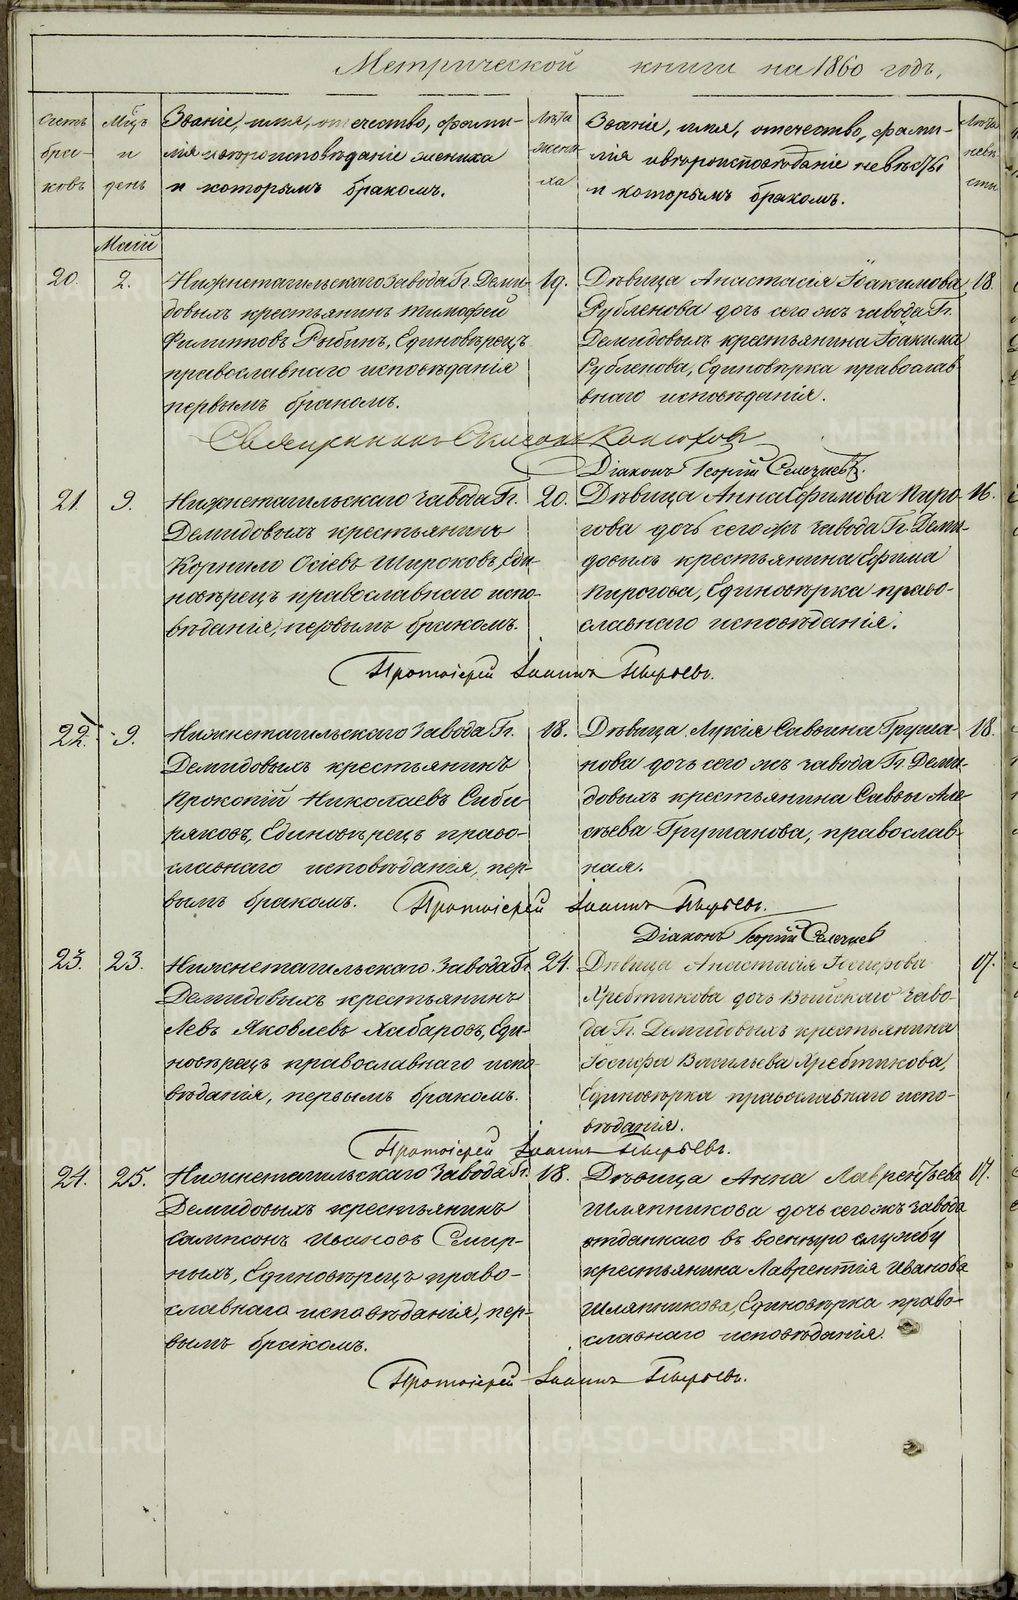 Метрической книги на 1860 годъ,
Счетъ браковъ
Мцъ и день
Званіе, имя, отечество, фами-
лія и вѣроисповѣданіе жениха
и которымъ бракомъ.
Лѣта жениха
Званіе, имя, отечество, фами-
лія и вѣроисповѣданіе невѣсты
и которымъ бракомъ.
Лѣта невѣсты
Маій
20. 2.
Нижнетагильскаго завода Гг. Деми-
довыхъ крестьянинъ Тимофей
Филипповъ Рыбинъ, Единовѣрецъ
православнаго исповѣданія
первымъ бракомъ.
19.
Дѣвица Анастасія Іоакимова
Рубленова дочь сего жъ завода Гг.
Демидовыхъ крестьянина Іоакима
Рубленова, Единовѣрка православ-
внаго исповѣданія.
18.
Священникъ Симеонъ Конюховъ
Діаконъ Георгій Селечнев.
21. 9.
Нижнетагильскаго завода Гг.
Демидовыхъ крестьянинъ
Корнило Осіевъ Широковъ, Еди-
новѣрецъ православнаго испо-
вѣданія, первымъ бракомъ.
20.
Дѣвица Анна Ефимова Пиро-
гова дочь сего жъ завода Гг. Деми-
довыхъ крестьянина Ефима
Пирогова, Единовѣрка право-
славнаго исповѣданія.
16.
Протоіерей Іоаннъ Пырьевъ.
22. 9.
Нижнетагильскаго завода Гг.
Демидовыхъ крестьянинъ
Прокопій Николаевъ Сиби-
ряковъ, Единовѣрецъ право-
славнаго исповѣданія, пер-
вымъ бракомъ.
18.
Дѣвица Лукія Саввина Груша-
нова дочь сего жъ завода Гг. Деми-
довыхъ крестьянина Саввы Але-
ксѣева Грушанова, православ-
ная.
18.
Протоіерей Іоаннъ Пырьевъ.
Діаконъ Георгій Селечнев
23. 23.
Нижнетагильскаго завода Гг.
Демидовыхъ крестьянинъ
Левъ Яковлевъ Хабаровъ, Еди-
новѣрецъ православнаго испо-
вѣданія, первымъ бракомъ.
24.
Дѣвица Анастасія Іосифова
Хребтикова дочь Выйскаго заво-
да Гг. Демидовыхъ крестьянина
Іосифа Васильева Хребтикова,
Единовѣрка православнаго испо-
вѣданія.
17.
Протоіерей Іоаннъ Пырьевъ.
24. 25.
Нижнетагильскаго завода Гг.
Демидовыхъ крестьянинъ
Сампсонъ Ивановъ Смир-
ныхъ, Единовѣрецъ право-
славнаго исповѣданія, пер-
вымъ бракомъ.
18.
Дѣвица Анна Лаврентьева
Шляпникова дочь сего жъ завода
отданнаго въ военную службу
крестьянина Лаврентія Иванова
Шляпникова, Единовѣрка право-
славнаго исповѣданія.
17.
Протоіерей Іоаннъ Пырьевъ.
METRIKI.GASO-URAL.RU